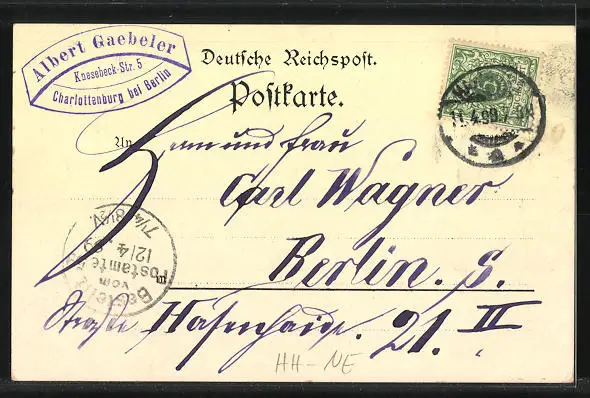 Albert Gaebeler
Knesebeck-Str. 5
Charlottenburg bei Berlin
Deutsche Reichspost.
Postkarte.
An
Herrn und Frau
Carl Wagner
in
Berlin. S.
Straße Hasenhaide. 21. II
11.4.99.7-
Bestellt
vom
Postamte
12/4.99
7¼-8½V.
HH-NE